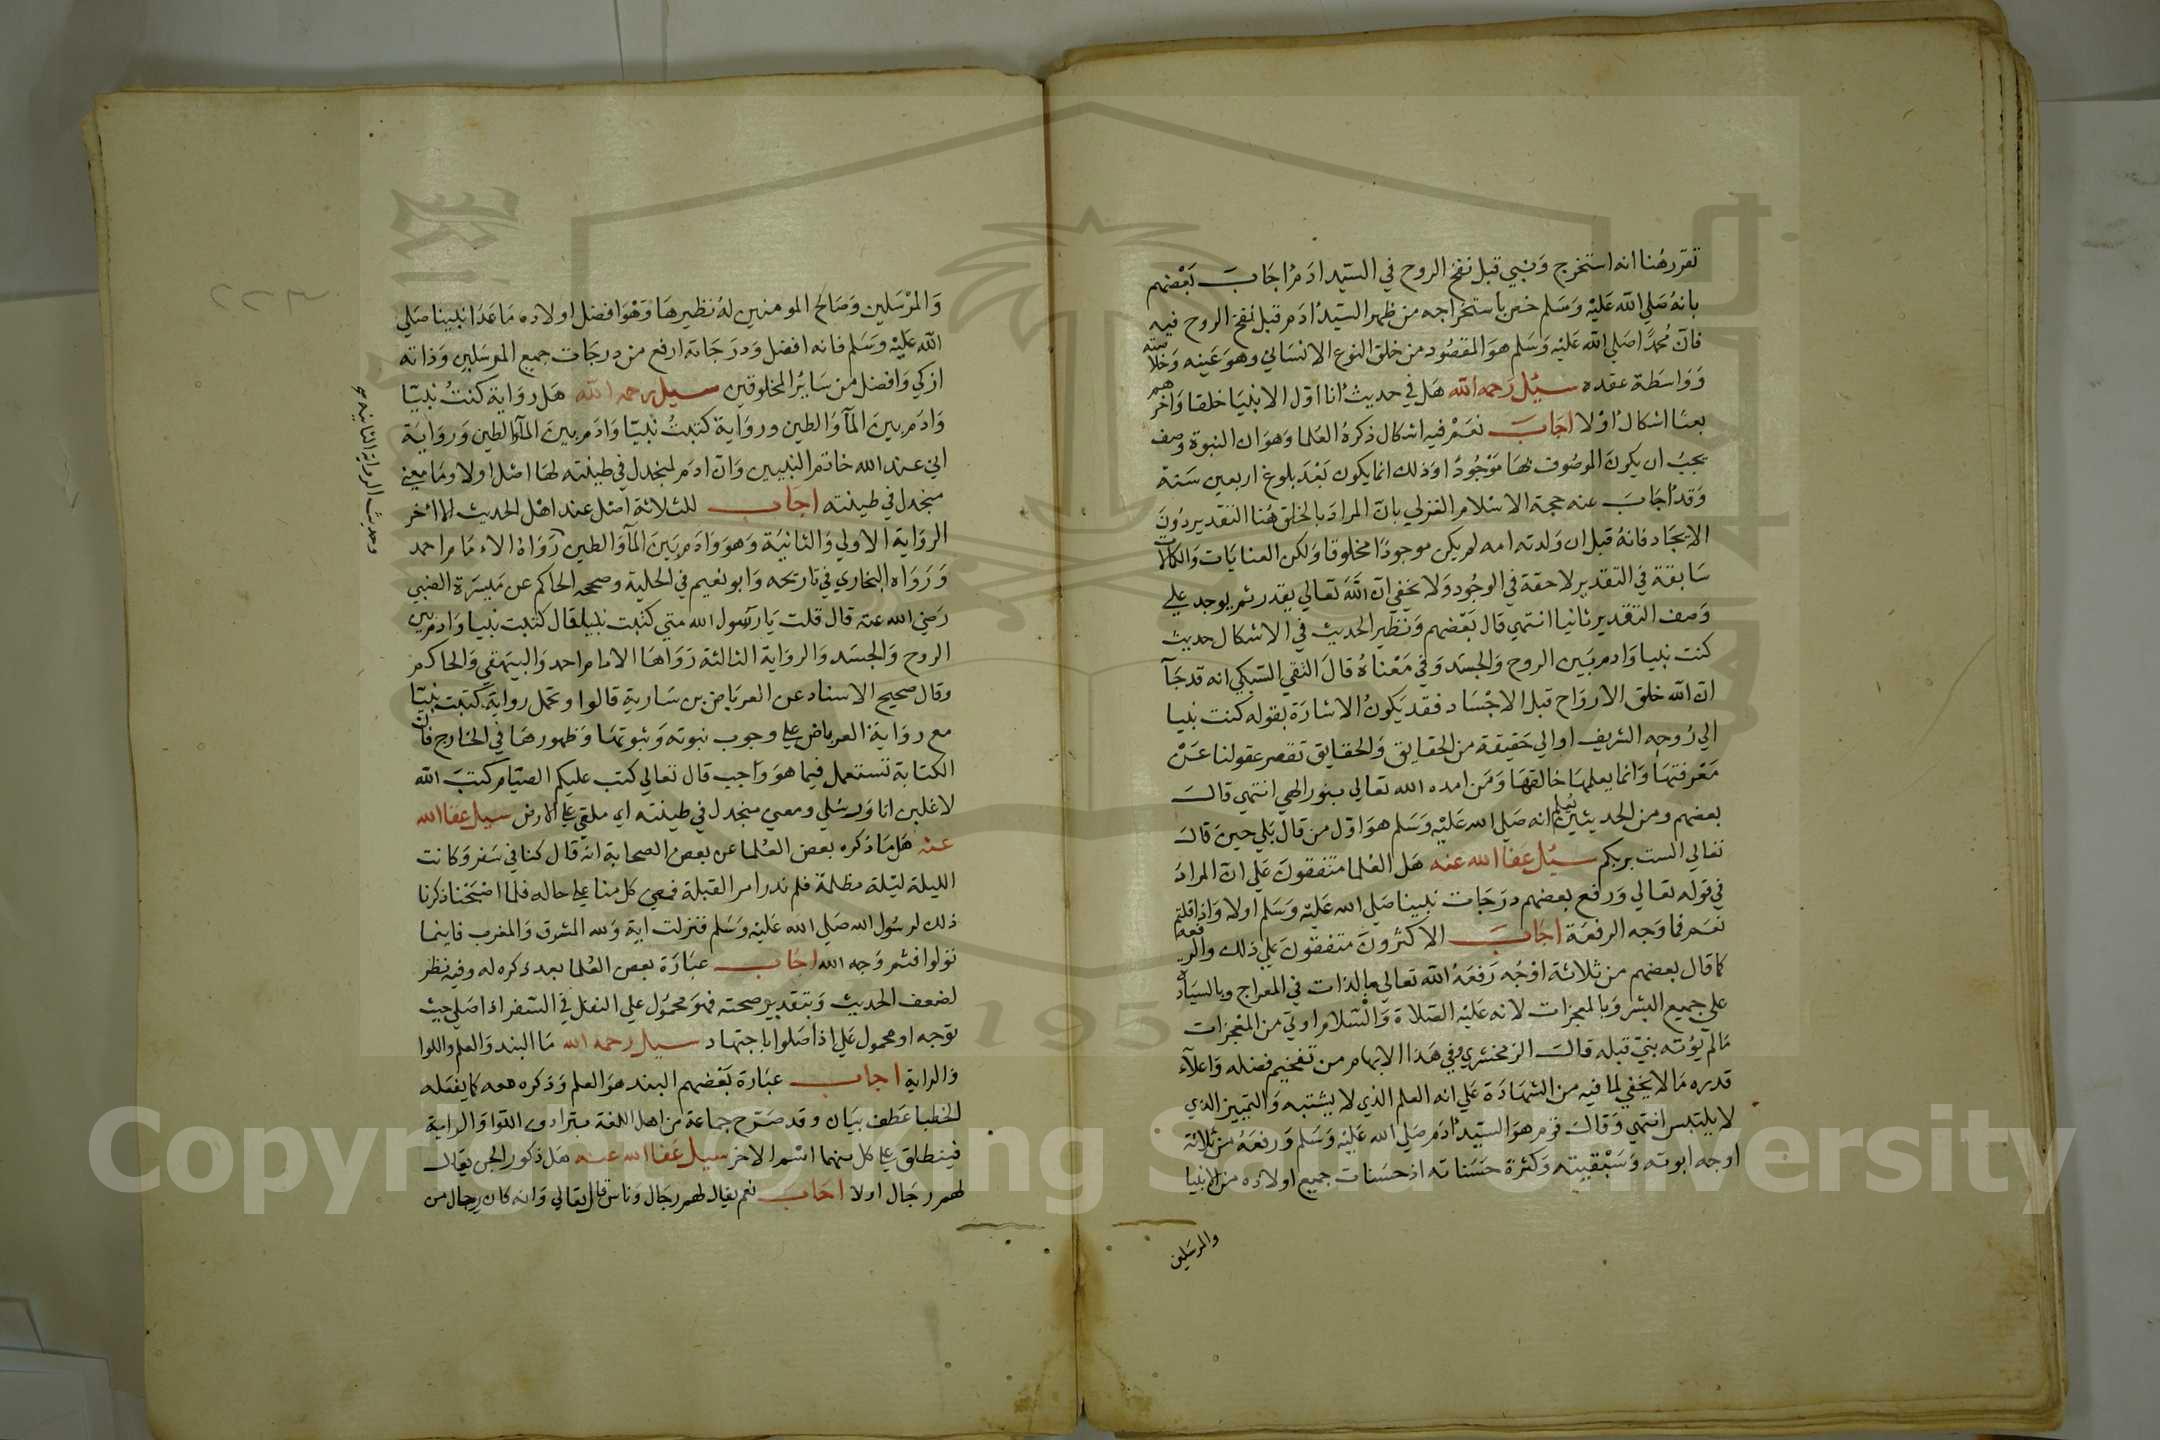 تقرر هنا انه استخرج ونبي قبل نفخ الروح في السيد ادم اجاب بعضهم
بانه صلي الله عليه وسلم خص باستخراجه من ظهر السيد ادم قبل نفخ الروح فيه
فان محمدا صلي الله عليه وسلم هو المقصود من خلق النوع الانساني وهو عينه وخلاصته
وواسطة عقده سئل رحمه الله هل في حديث انا اول الانبيا خلقا واخرهم
بعثا اشكال اولا اجاب نعم فيه اشكال ذكره العلما وهو ان النبوة وصف
يجب ان يكون الموصوف بها موجودا وذلك انما يكون بعد بلوغ اربعين سنة
وقد اجاب عنه حجة الاسلام الغزلي بان المراد بالخلق هنا التقدير دون
الايجاد فانه قبل ان ولدته امه لم يكن موجودا مخلوقا ولكن الغايات والكمالات
سابقة في التقدير لاحقة في الوجود ولا يخفي ان الله تعالي يقدر ثم يوجد علي
وصف التقدير ثانيا انتهي قال بعضهم ونظير الحديث في الاشكال حديث
كنت نبيا وادم بين الروح والجسد وفي معناه قال التقي السبكي انه قد جآ
ان الله خلق الارواح قبل الاجساد فقد يكون الاشارة بقوله كنت نبيا
الي روحه الشريف او الي حقيقة من الحقايق والحقايق تقصر عقولنا عن
معرفتها وانما يعلمها خالقها ومن امده الله تعالي بنور الهي انتهي قال
بعضهم ومن الحديثين يعلم انه صلي الله عليه وسلم هو اول من قال بلي حين قال
تعالي الست بربكم سئل عفا الله عنه هل العلما متفقون علي ان المراد
في قوله تعالي ورفع بعضهم درجات نبينا صلي الله عليه وسلم اولا واذا قلتم
نعم فما وجه الرفعة اجاب الاكثرون متفقون علي ذلك والرفعة
كما قال بعضهم من ثلاثة اوجه رفعه الله تعالي بالذات في المعراج وبالسيادة
علي جميع البشر وبالمعجزات لانه عليه الصلاة والسلام اوتي من المعجزات
مالم يؤته نبي قبله قال الزمخشري وفي هذا الابهام من تفخيم فضله واعلآء
قدره ما لا يخفي لما فيه من الشهادة علي انه العلم الذي لا يشتبه والتمييز الذي
لا يلتبس انتهي وقال قوم هو السيد ادم صلي الله عليه وسلم ورفعه من ثلاثة
اوجه ابوته وسبقيته وكثرة حسناته اذ حسنات جميع اولاده من الانبيا
والمرسلين
والمرسلين وصالح المومنين له نظيرها وهو افضل اولاده ما عدا نبينا صلي
الله عليه وسلم فانه افضل ودرجاته ارفع من درجات جميع المرسلين وذاته
ازكي وافضل من ساير المخلوقين سيل رحمه الله هل رواية كنت نبيا
وادم بين المآ والطين ورواية كتبت نبيا وادم بين المآ والطين ورواية
اني عند الله خاتم النبيين وان ادم لمنجدل في طينته لها اصل اولا وما معني
منجدل في طينته اجاب للثلاثة اصل عند اهل الحديث
الرواية الاولي والثانية وهو وادم بين المآ والطين رواه الامام احمد
ورواه البخاري في تاريخه وابو نعيم في الحلية وصححه الحاكم عن ميسرة الضبي
رضي الله عنه قال قلت يا رسول الله متي كتبت نبيا قال كتبت نبيا وادم بين
الروح والجسد والرواية الثالثة رواها الامام احمد والبيهقي والحاكم
وقال صحيح الاسناد عن العرباض بن سارية قالوا وتحمل رواية كتبت نبيا
مع رواية العرباض علي وجوب نبوته وثبوتها وظهورها في الخارج فان
الكتابة تستعمل فيما هو واجب قال تعالي كتب عليكم الصيام كتب الله
لاغلبن انا ورسلي ومعني منجدل في طينته اي ملقي علي الارض سيل عفا الله
عنه هل ما ذكره بعض العلما عن بعض الصحابة انه قال كنا في سفر وكانت
الليلة ليلة مظلمة فلم ندر امر القبلة فصلي كل منا علي حاله فلما اصبحنا ذكرنا
ذلك لرسول الله صلي الله عليه وسلم فنزلت اية ولله المشرق والمغرب فاينما
تولوا فثم وجه الله اجاب عبارة بعض العلما بعد ذكره له وفيه نظر
لضعف الحديث وبتقدير صحته فهو محمول علي النفل في السفر اذا صلي حيث
توجه او محمول علي اذا صلوا باجتهاد سيل رحمه الله ما البند والعلم واللوا
والراية اجاب عبارة بعضهم البند هو العلم وذكره معه كما يفعله
الخطبا عطف بيان وقد صرح جماعة من اهل اللغة بترادف اللوا والراية
فينطلق علي كل منهما اسم الاخر سيل عفا الله عنه هل ذكور الجن يقال
لهم رجال اولا اجاب نعم يقال لهم رجال وناس قال تعالي وانه كان رجال من
وحديث الرواية الثانية
Copyright © King Saud University
195